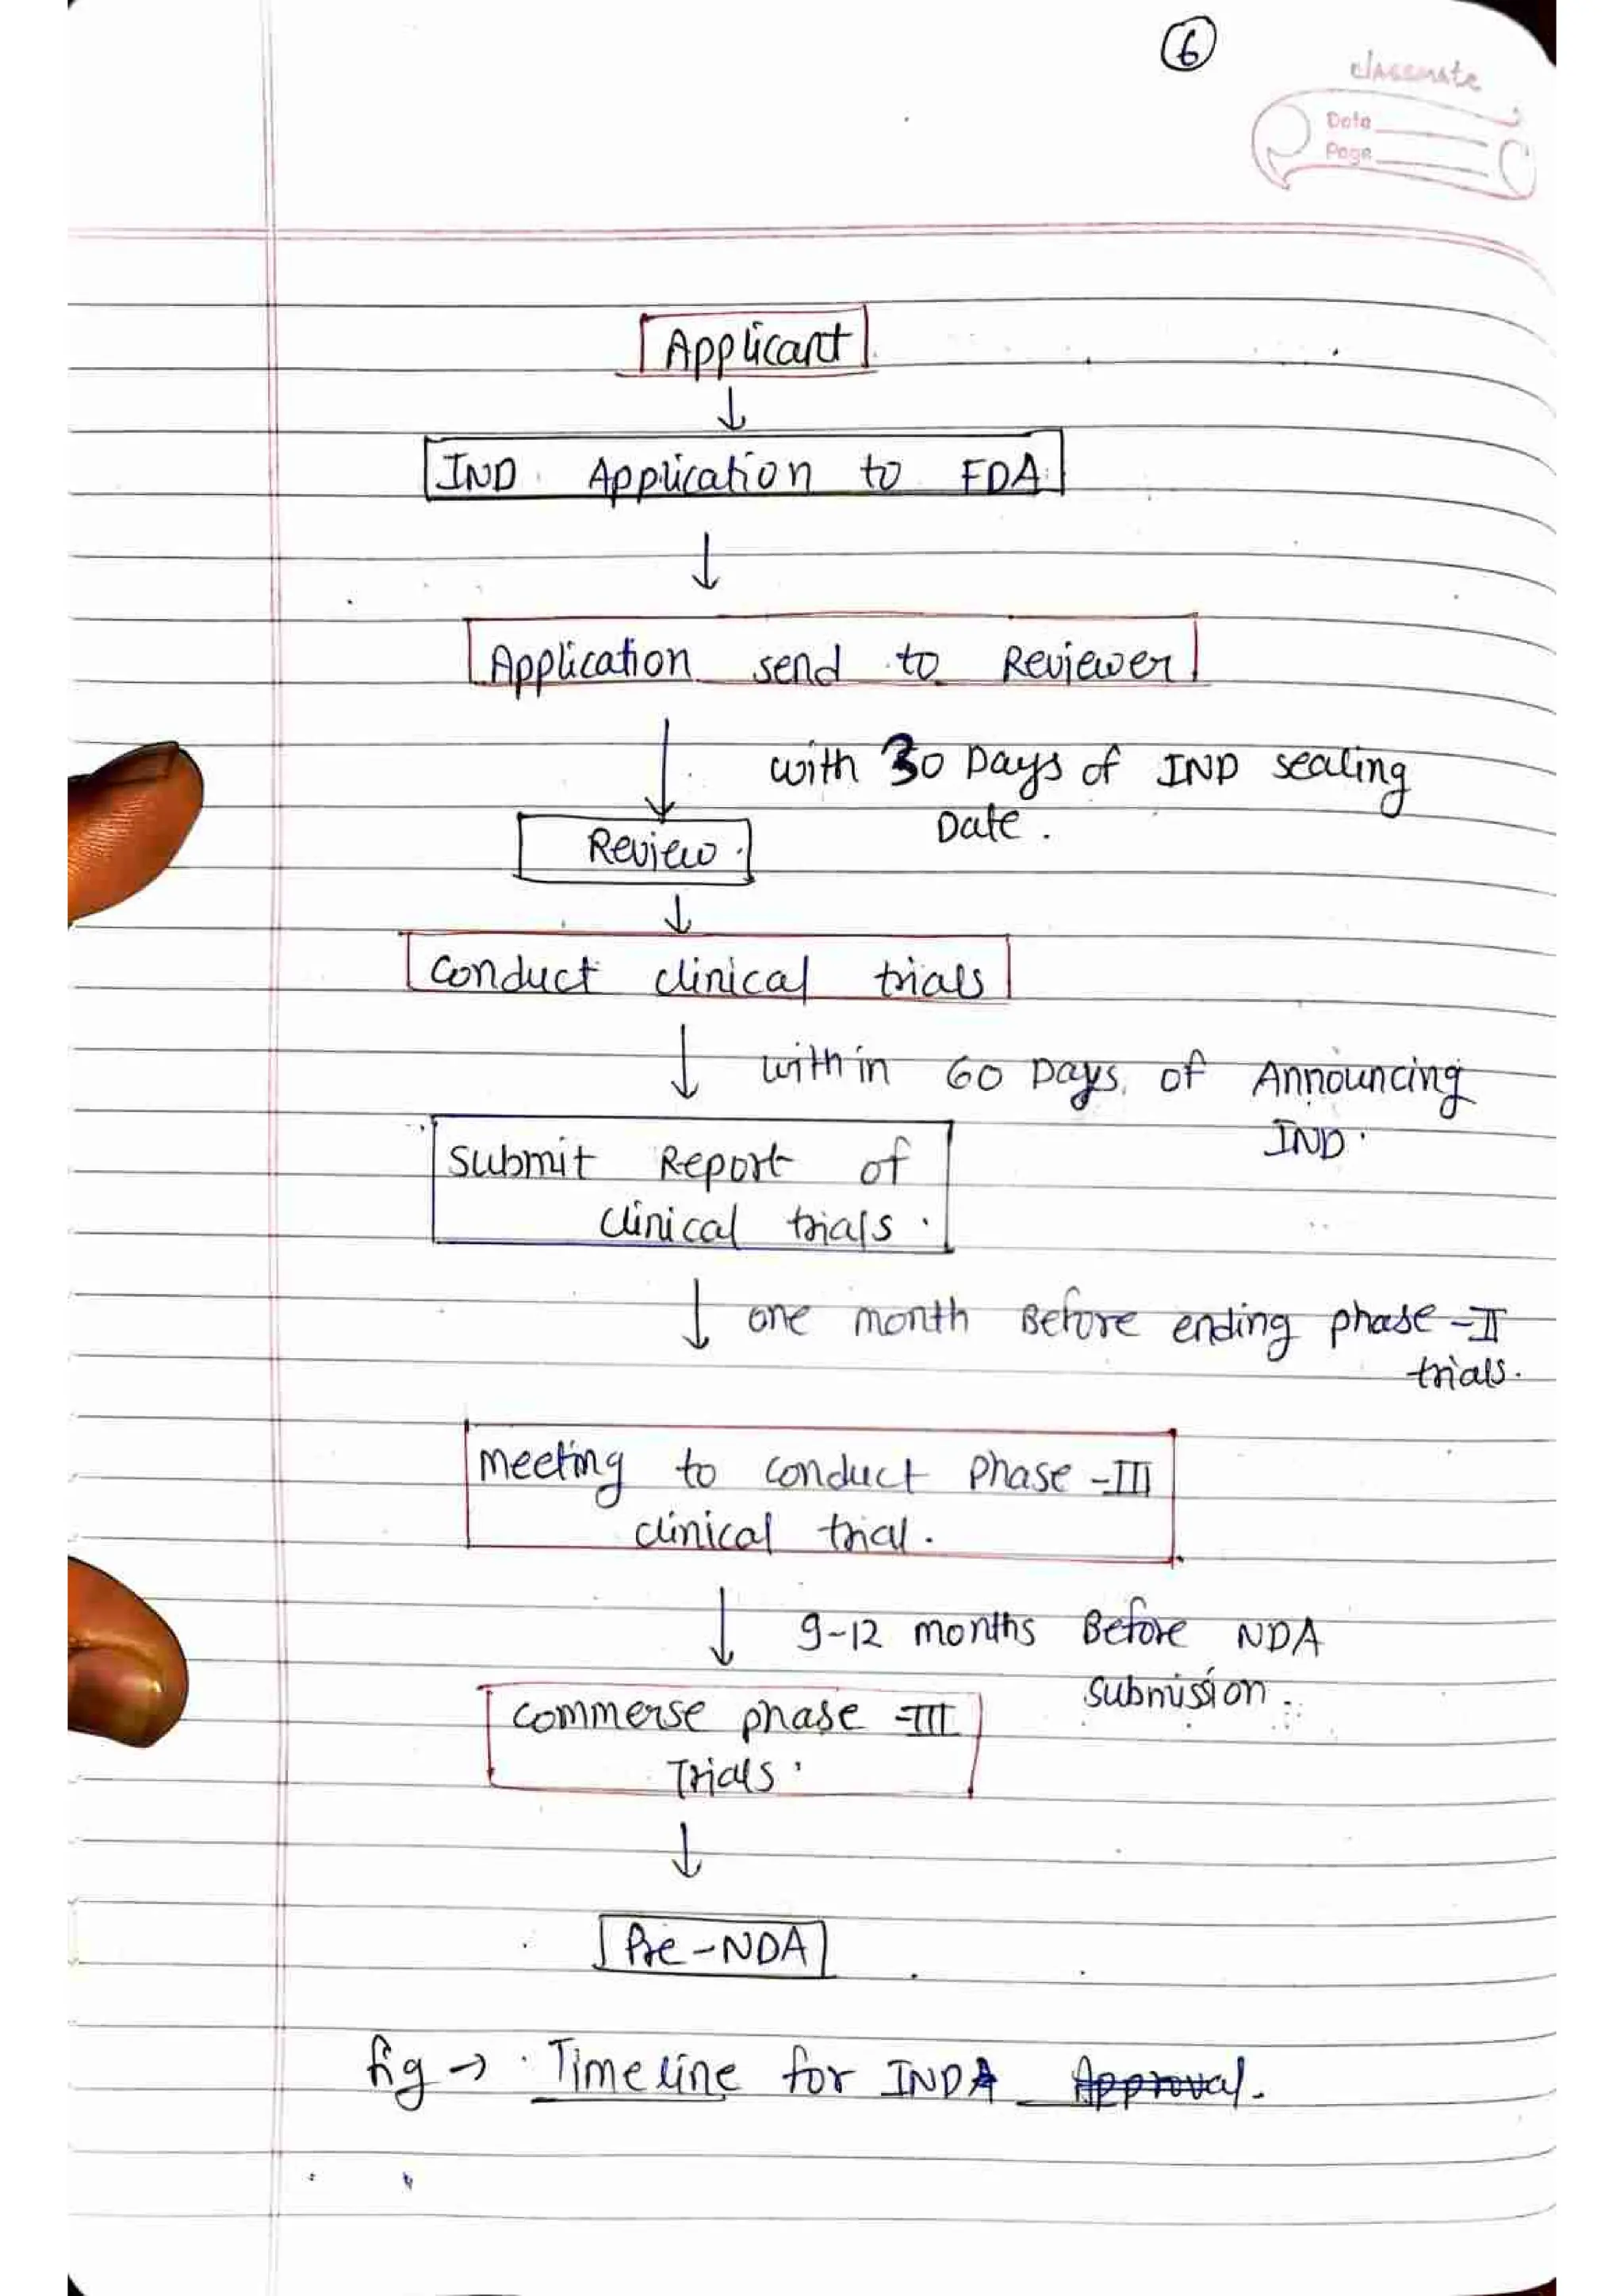 6
classmate
Date
Page
Applicant
IND Application to FDA
Application send to Reviewer
with 30 Days of IND sealing
Date.
Review.
conduct clinical trials
within 60 Days of Announcing
IND.
Submit Report of
clinical trials.
one month Before ending phase-II
trials.
meeting to conduct Phase-III
clinical trial.
9-12 months Before NDA
submission.
commerse phase-III
Trials.
Pre-NDA
fig → Timeline for INDA Approval.